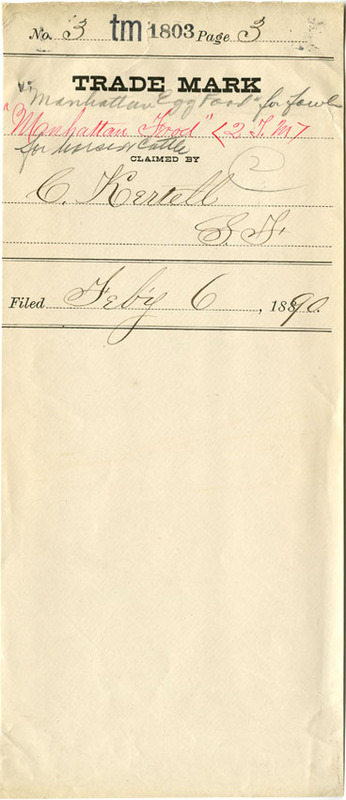 No. 3 tm 1803 Page 3
TRADE MARK
"Manhattan Egg Food" for fowl
"Manhattan Food" (2 T.M)
for horse or cattle
CLAIMED BY 2
C. Kertell
S. F.
Filed Feb'y 6, 1890.